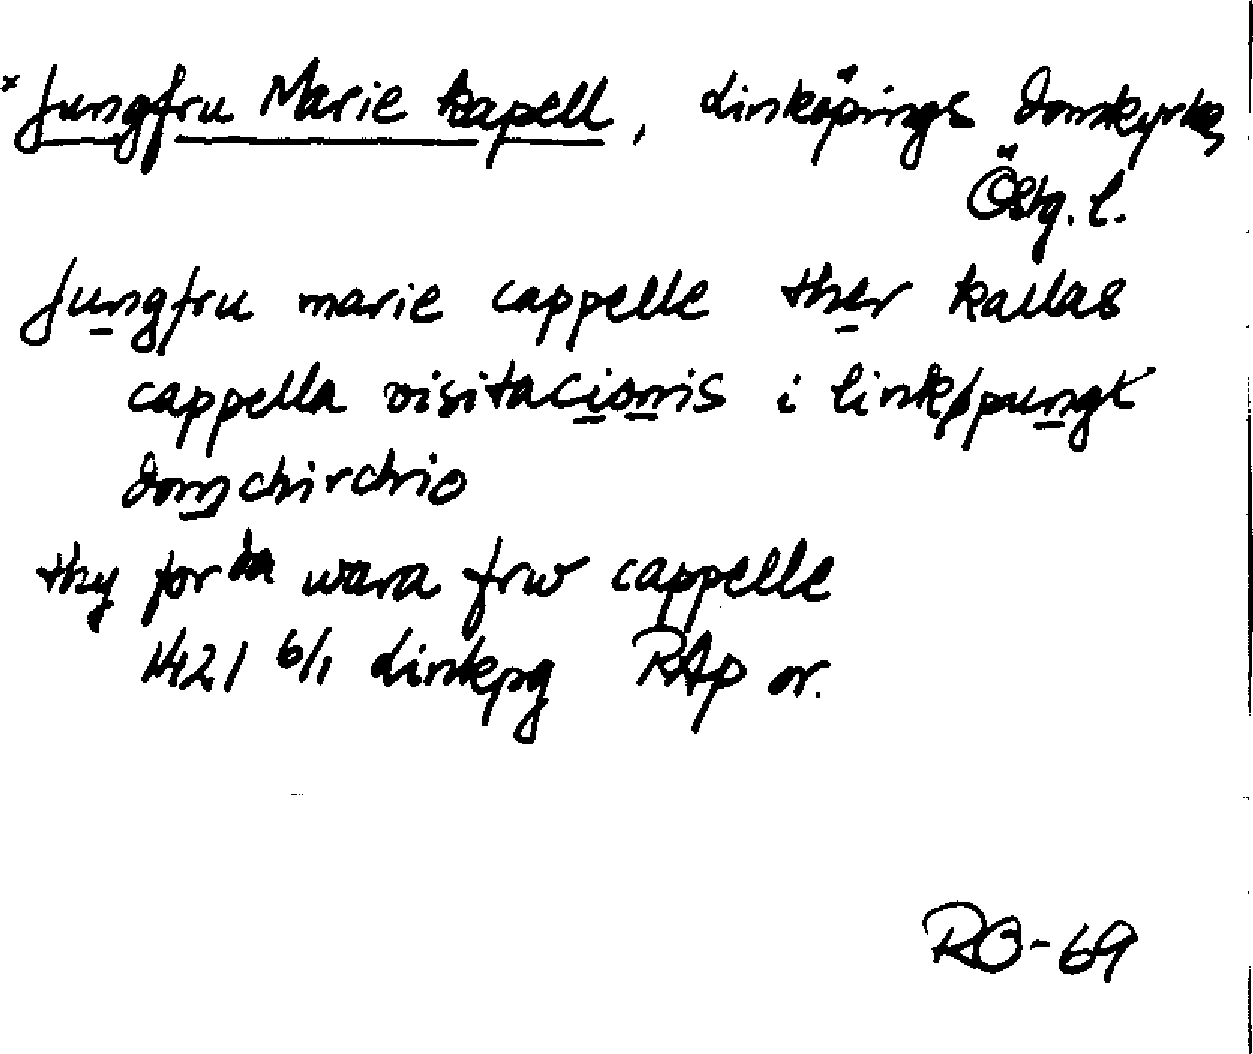 *Jungfru Marie kapell, Linköpings domkyrka,
Östg. l.
Jungfru marie cappelle ther kallas
cappella visitacionis i linkøpungx
domchirchio
thy for da wara frw cappelle
1421 6/1 Linkpg RAp or.
RO-69